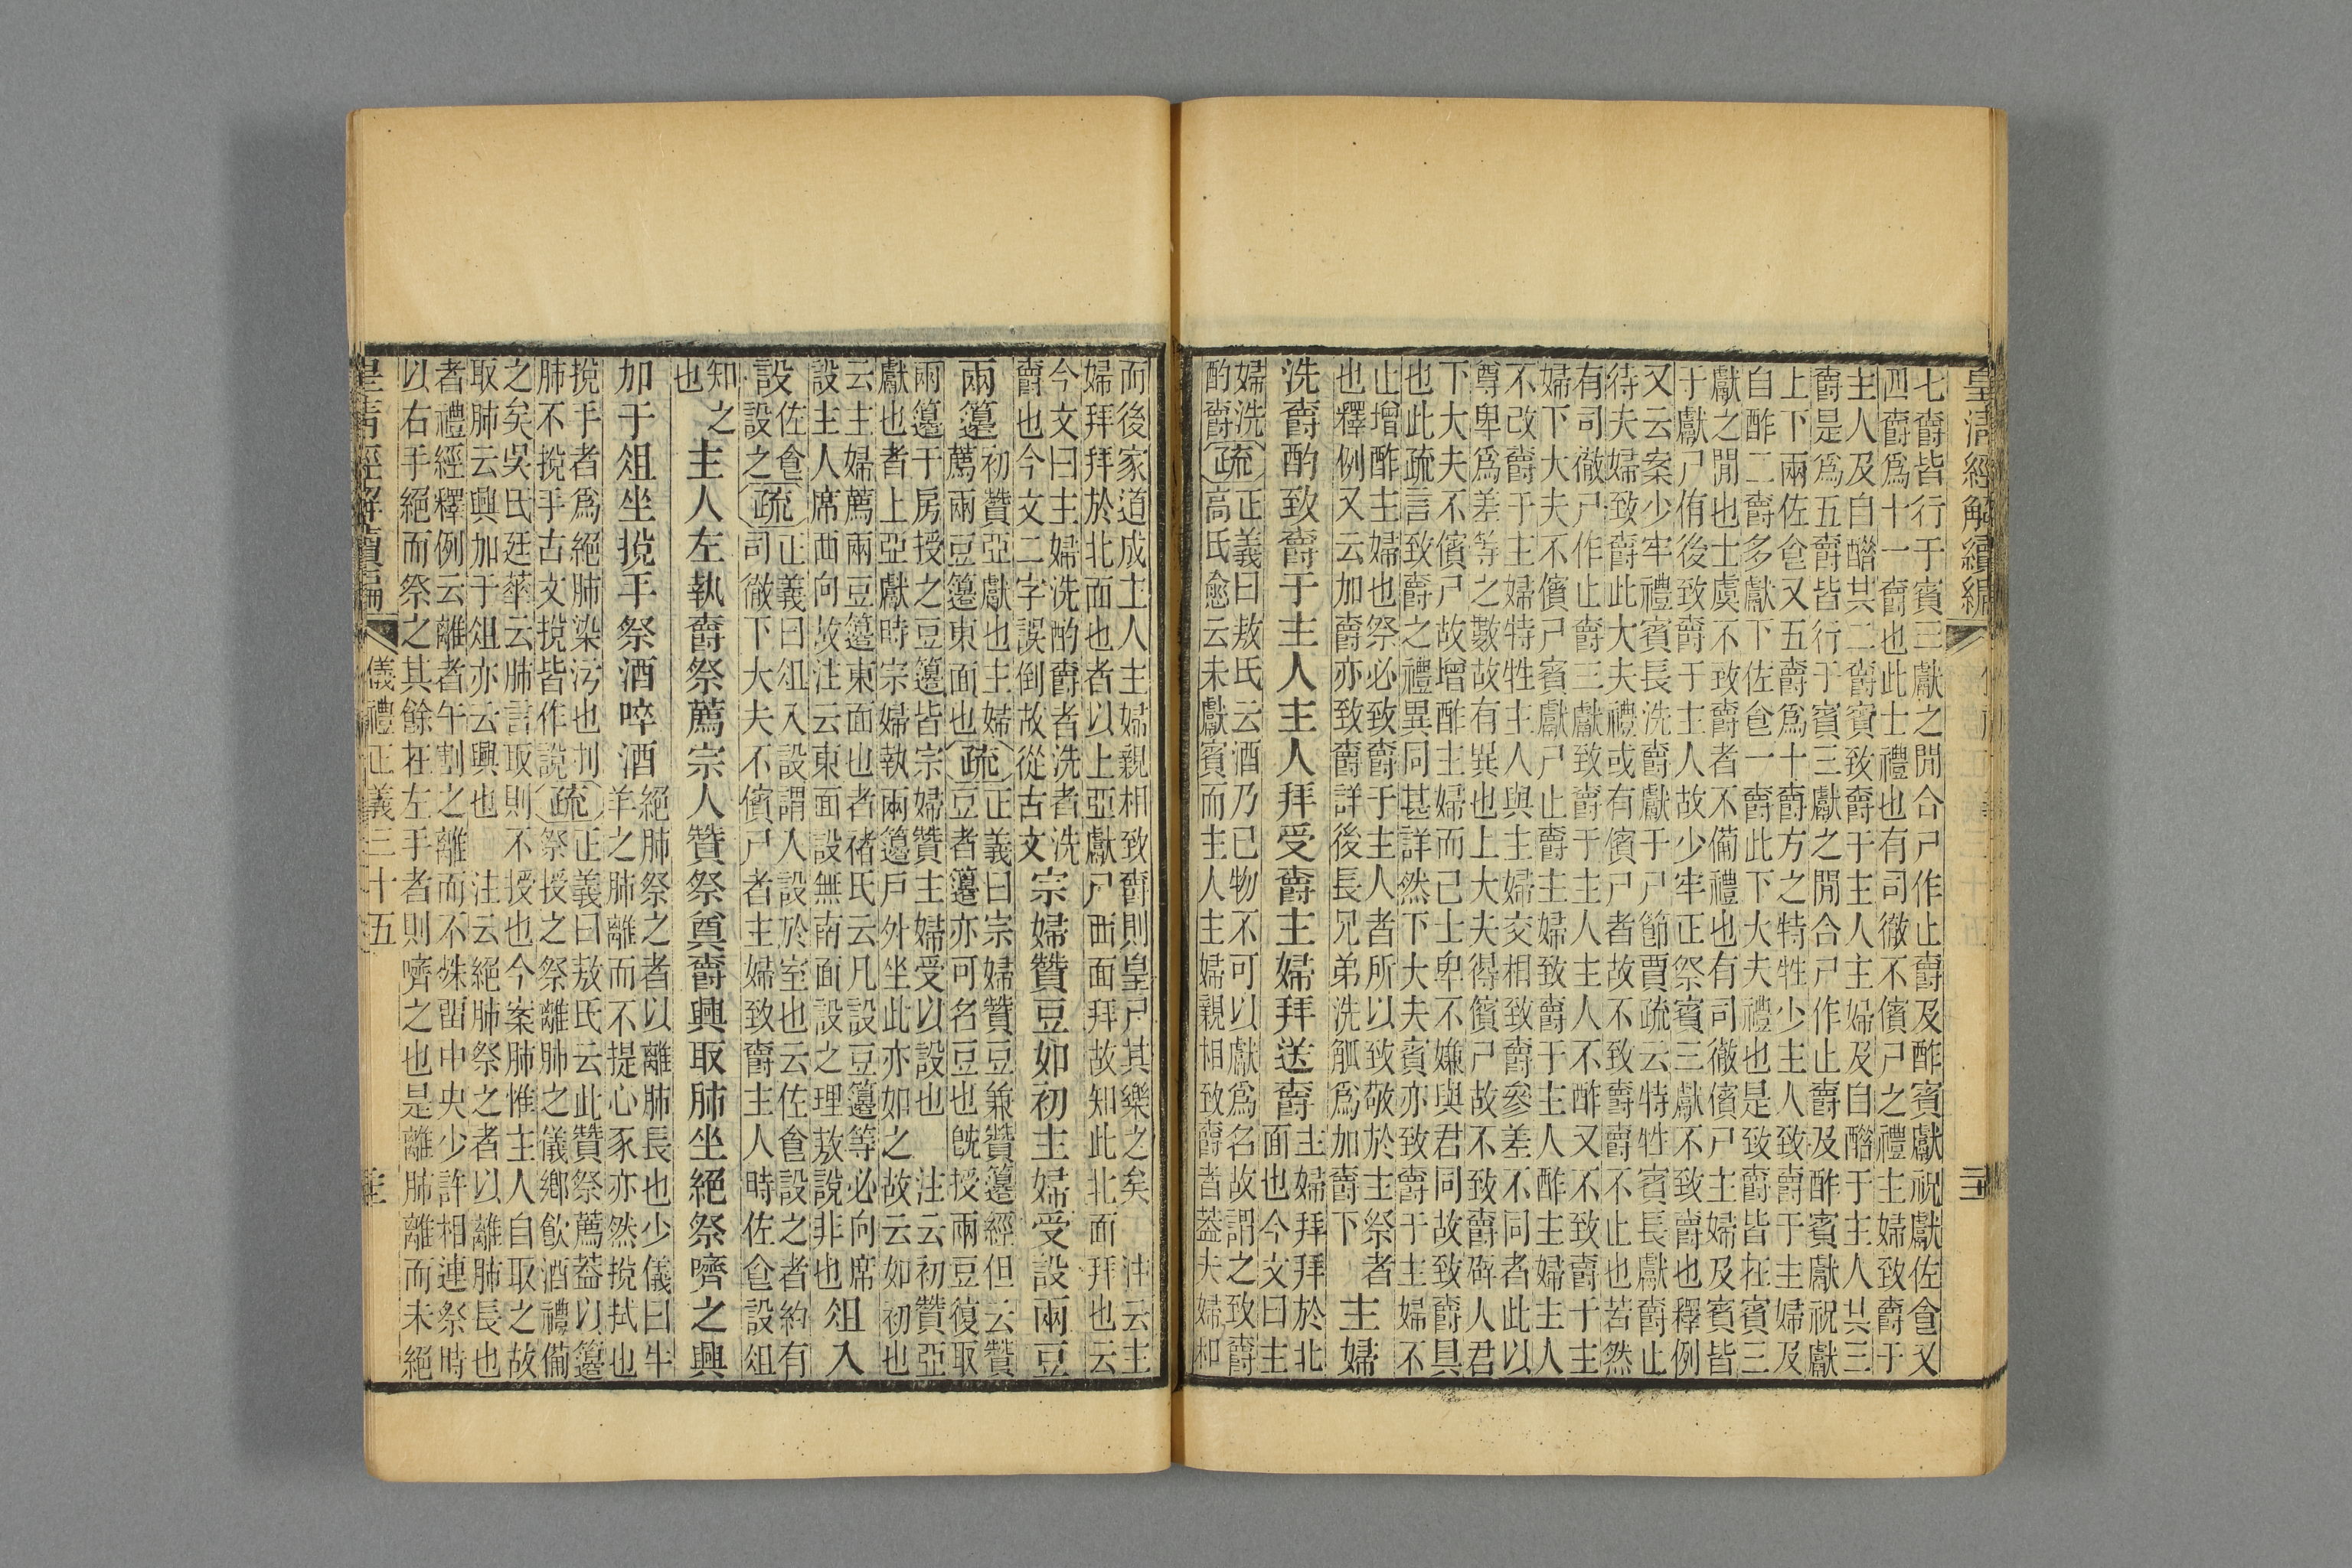 皇清經解續編
七爵皆行于賓三獻之閒合尸作止爵及酢賓獻祝獻佐食又
四爵爲十一爵也此士禮也有司徹不儐尸之禮主婦致爵于
主人及自醋其二爵賓致爵于主人主婦及自醋于主人共三
爵是爲五爵皆行于賓三獻之閒合尸作止爵及酢賓獻祝獻
上下兩佐食又五爵爲十爵方之特牲少主人致爵于主婦及
自酢二爵多獻下佐食一爵此下大夫禮也是致爵皆在賓三
獻之閒也士虞不致爵者不備禮也有司徹儐尸主婦及賓皆
于獻尸侑後致爵于主人故少牢正祭賓三獻不致爵也釋例
又云案少牢禮賓長洗爵獻于尸節賈疏云特牲賓長獻爵止
待夫婦致爵此大夫禮或有儐尸者故不致爵不止也若然
有司徹尸作止爵三獻致爵于主人主人不酢又不致爵于主
婦下大夫不儐尸賓獻尸止爵主婦致爵于主人酢主婦主人
不改爵于主婦特牲主人與主婦交相致爵參差不同者此以
尊卑爲差等之數故有異也上大夫得儐尸故不致爵辟人君
下大夫不儐尸故增酢主婦而已士卑不嫌與君同故致爵具
也此疏言致爵之禮異同甚詳然下大夫賓亦致爵于主婦不
止增酢主婦也祭必致爵于主人者所以致敬於主祭者
也釋例又云加爵亦致爵詳後長兄弟洗觚爲加爵下
主婦
洗爵酌致爵于主人主人拜受爵主婦拜送爵
主婦拜拜於北
面也今文曰主
婦洗
酌爵
疏
正義曰敖氏云酒乃已物不可以獻爲名故謂之致爵
高氏愈云未獻賓而主人主婦親相致爵者蓋夫婦和
而後家道成主人主婦親相致爵則皇尸其樂之矣 注云主
婦拜拜於北面也者以上亞獻尸西面拜故知此北面拜也云
今文曰主婦洗酌爵者洗者洗
爵也今文二字誤倒故從古文
宗婦贊豆如初主婦受設兩豆
兩籩
初贊亞獻也主婦
薦兩豆籩東面也
疏
正義曰宗婦贊豆兼贊籩經但云贊
豆者籩亦可名豆也旣授兩豆復取
兩籩于房授之豆籩皆宗婦贊主婦受以設也 注云初贊亞
獻也者上亞獻時宗婦執兩籩戶外坐此亦如之故云如初也
云主婦薦兩豆籩東面也者褚氏云凡設豆籩等必向席
設主人席西向故注云東面設無南面設之理敖說非也
俎入
設
佐食
設之
疏
正義曰俎入設謂人設於室也云佐食設之者約有
司徹下大夫不儐尸者主婦致爵主人時佐食設俎
知之
也
主人左執爵祭薦宗人贊祭奠爵興取肺坐絕祭嚌之興
加于俎坐挩手祭酒啐酒
絕肺祭之者以離肺長也少儀曰牛
羊之肺離而不提心豕亦然挩拭也
挩手者爲絕肺染污也刌
肺不挩手古文挩皆作說
疏
正義曰敖氏云此贊祭薦蓋以籩
祭授之祭離肺之儀鄉飮酒禮備
之矣吳氏廷華云肺言取則不授也今案肺惟主人自取之故
取肺云興加于俎亦云興也 注云絕肺祭之者以離肺長也
者禮經釋例云離者午割之離而不殊留中央少許相連祭時
以右手絕而祭之其餘在左手者則嚌之也是離肺離而未絕
皇清經解續編
儀禮正義三十五